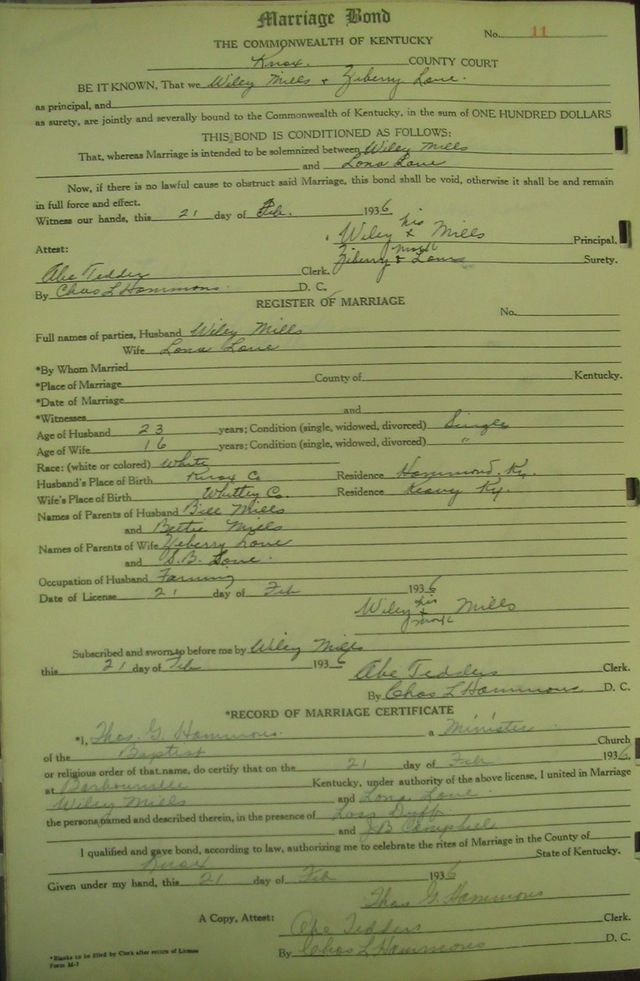 Marriage Bond
No. 11
THE COMMONWEALTH OF KENTUCKY
Knox. COUNTY COURT
BE IT KNOWN, That we Wiley Mills & Ziberry Lane.
as principal, and
as surety, are jointly and severally bound to the Commonwealth of Kentucky, in the sum of ONE HUNDRED DOLLARS
THIS BOND IS CONDITIONED AS FOLLOWS:
That, whereas Marriage is intended to be solemnized between Wiley Mills
and Lona Lane
Now, if there is no lawful cause to obstruct said Marriage, this bond shall be void, otherwise it shall be and remain
in full force and effect.
Witness our hands, this 21 day of Feb. 1936
his
Wiley x Mills Principal.
Attest: mark
Ziberry x Lane Surety.
Abe Tedders Clerk.
By Chas L Hammons. D. C.
REGISTER OF MARRIAGE
No.
Full names of parties, Husband Wiley Mills
Wife Lona Lane
*By Whom Married
*Place of Marriage County of Kentucky.
*Date of Marriage
*Witnesses and
Age of Husband 23 years; Condition (single, widowed, divorced) Single
Age of Wife 16 years; Condition (single, widowed, divorced) "
Race: (white or colored) White
Husband's Place of Birth Knox Co Residence Hammond, Ky.
Wife's Place of Birth Whitley Co. Residence Keavy Ky.
Names of Parents of Husband Bill Mills
and Bettie Mills
Names of Parents of Wife Ziberry Lane
and S.B. Lane.
Occupation of Husband Farming
Date of License 21 day of Feb 1936
his
Wiley x Mills
mark
Subscribed and sworn to before me by Wiley Mills
this 21 day of Feb 1936
Abe Tedders Clerk.
By Chas L Hammons D. C.
*RECORD OF MARRIAGE CERTIFICATE
*I, Thos. G. Hammons. a Minister
of the Baptist Church
or religious order of that name, do certify that on the 21 day of Feb 1936
at Barbourville Kentucky, under authority of the above license, I united in Marriage
Wiley Mills and Lona Lane.
the persons named and described therein, in the presence of
and J.B. Campbell
I qualified and gave bond, according to law, authorizing me to celebrate the rites of Marriage in the County of
Knox State of Kentucky.
Given under my hand, this 21 day of Feb 1936
Thos G. Hammons
A Copy, Attest: Abe Tedders Clerk.
By Chas L Hammons D. C.
*Blanks to be filled by Clerk after return of License
Form M-1